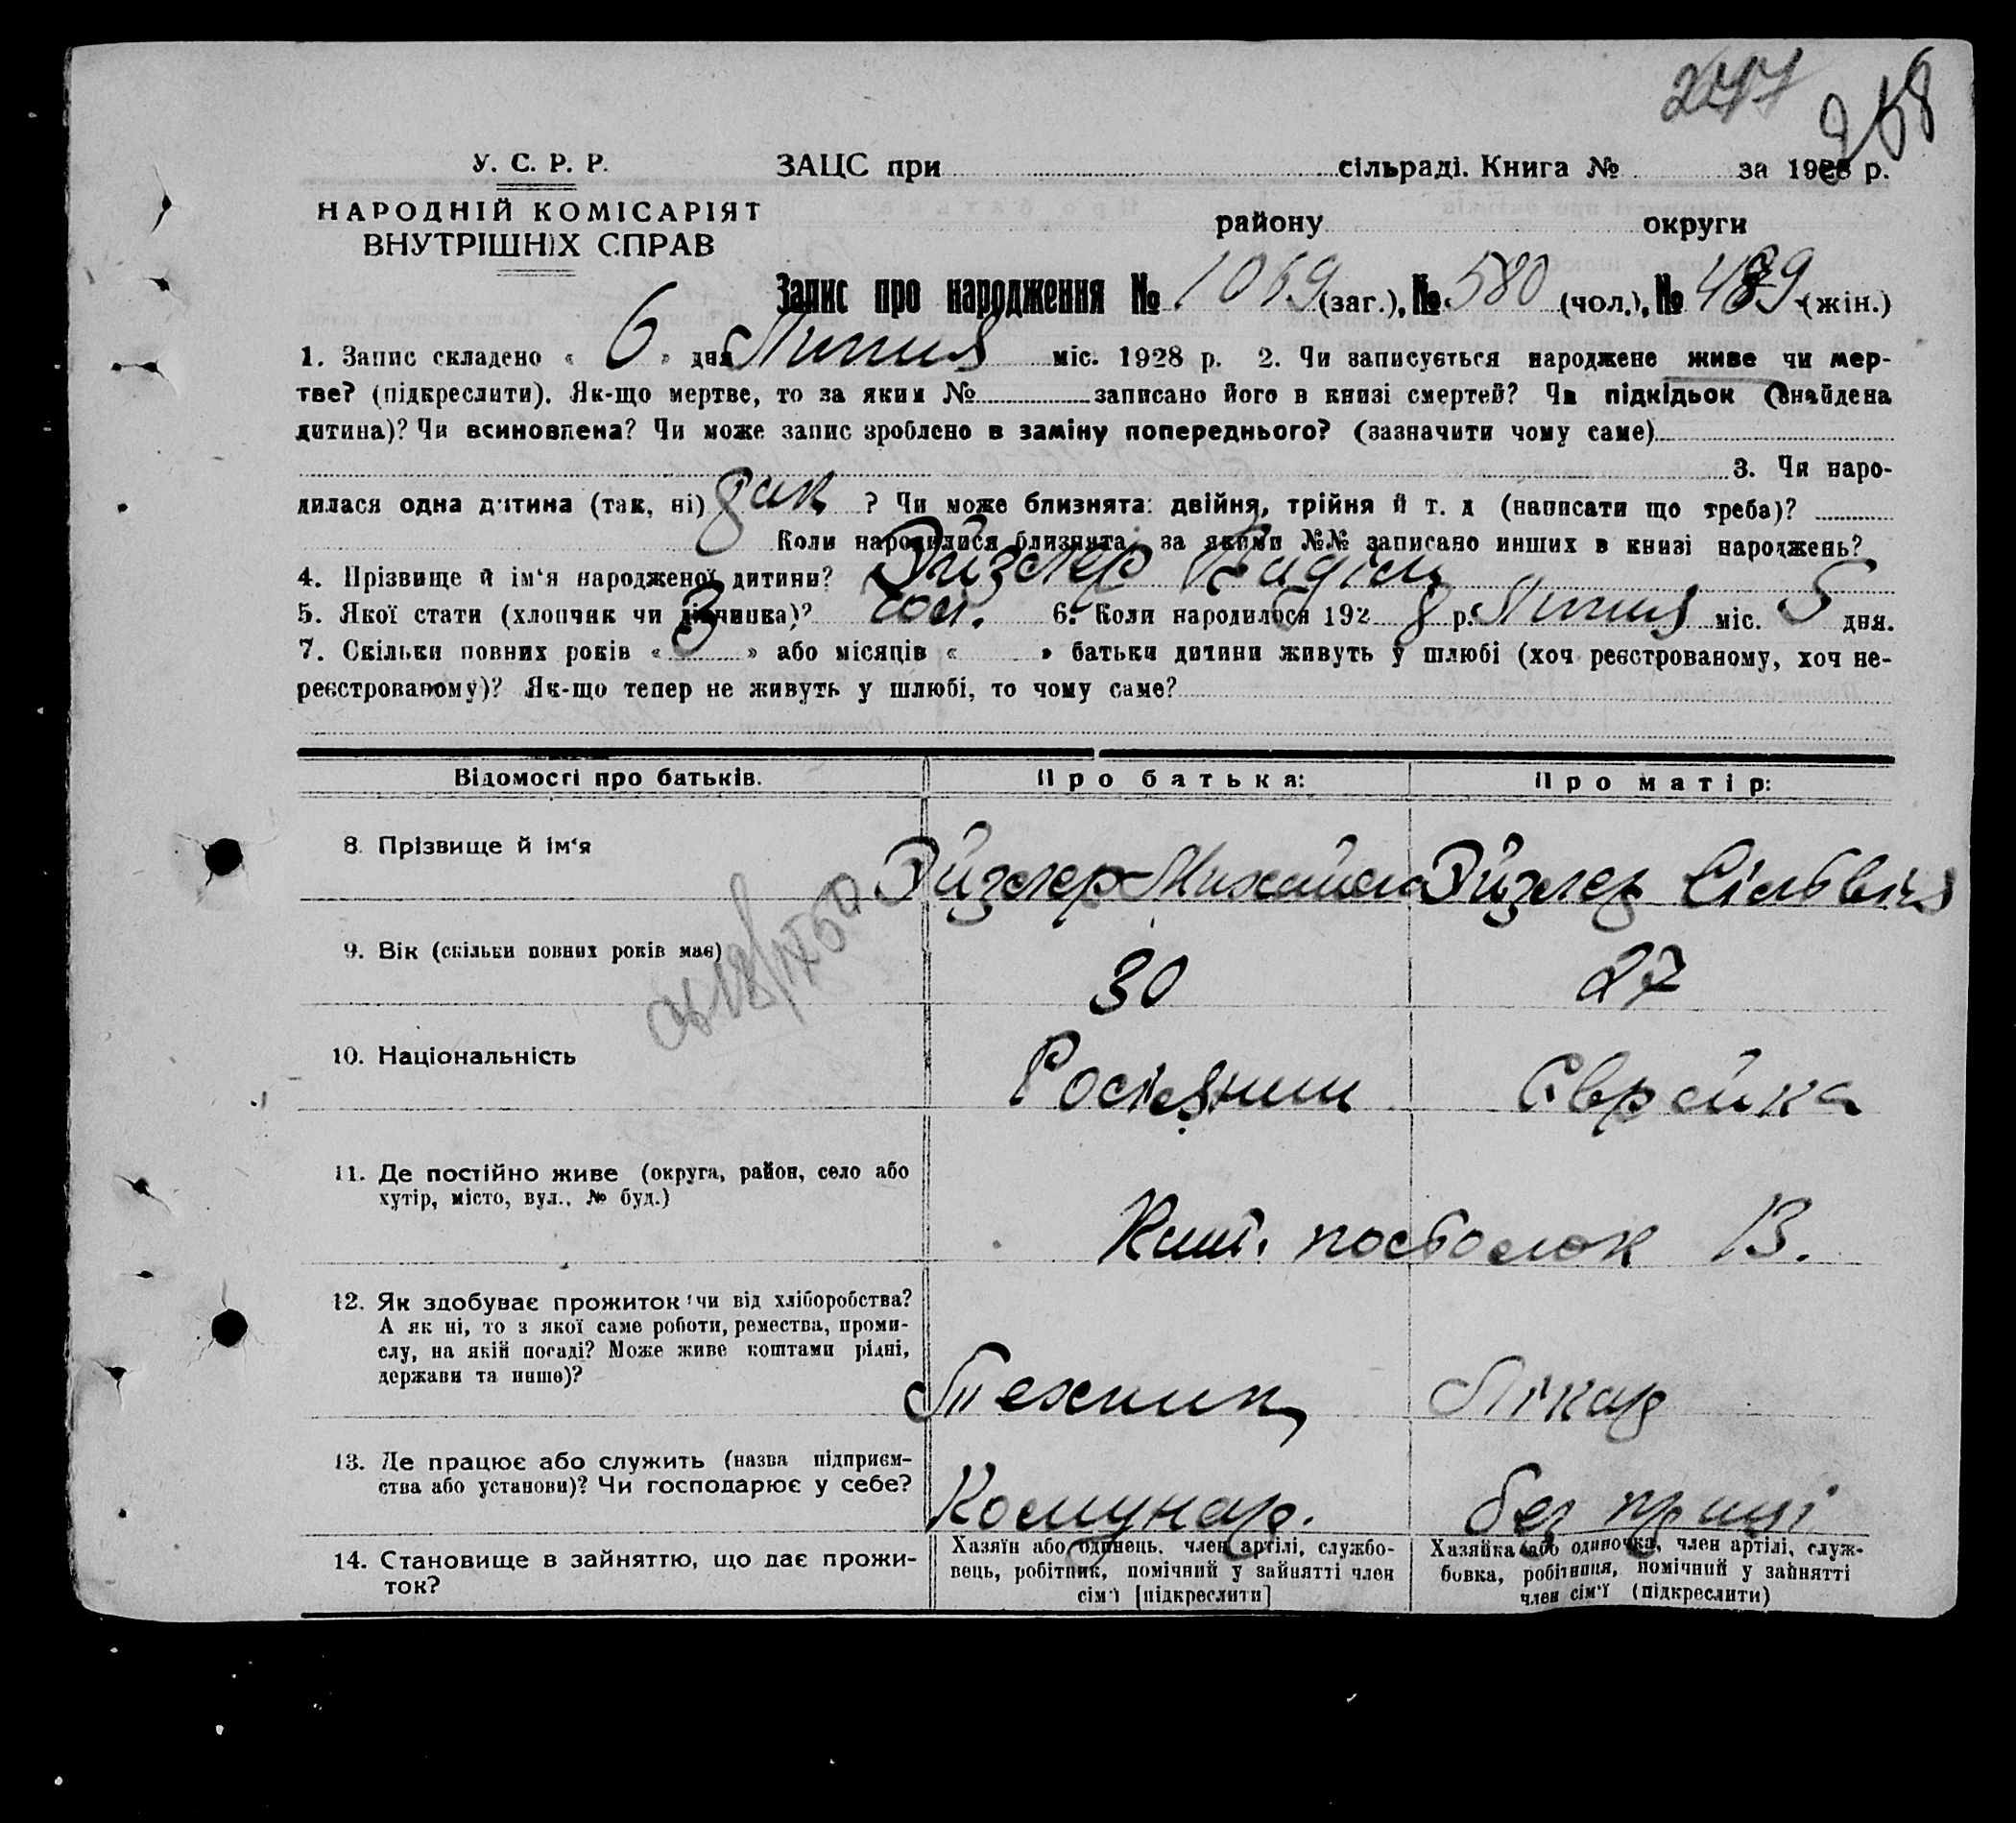 247 258
У. С. Р. Р. ЗАЦС при сільраді. Книга № за 1928 р.
НАРОДНІЙ КОМІСАРІЯТ району округи
ВНУТРІШНІХ СПРАВ
Запис про народження № 1069 (заг.), № 580 (чол.), № 489 (жін.)
1. Запис складено « 6 » дня Липня міс. 1928 р. 2. Чи записується народжене живе чи мер-
тве? (підкреслити). Як-що мертве, то за яким № записано його в книзі смертей? Чи підкідьок (знайдена
дитина)? Чи всиновлена? Чи може запис зроблено в заміну попереднього? (зазначити чому саме)
3. Чи наро-
дилася одна дитина (так, ні) так ? Чи може близнята: двійня, трійня й т. д (написати що треба)?
Коли народилися близнята, за якими №№ записано инших в книзі народжень?
4. Прізвище й ім‘я народженої дитини? Эйзлер Вадім
5. Якої стати (хлопчик чи дівчинка)? чол. 6. Коли народилося 1928 р. Липня міс. 5 дня.
7. Скільки повних років « 3 » або місяців « » батьки дитини живуть у шлюбі (хоч реєстрованому, хоч не-
реєстрованому)? Як-що тепер не живуть у шлюбі, то чому саме?
Відомості про батьків. Про батька: Про матір:
8. Прізвище й ім‘я Эйзлер Михайло Эйзлер Сільвія
9. Вік (скільки повних років має) 30 27
10. Національність Росіянин Єврейка
11. Де постійно живе (округа, район, село або
хутір, місто, вул., № буд.)
посьолок 13.
12. Як здобуває прожиток чи від хліборобства?
А як ні, то з якої саме роботи, ремества, проми-
слу, на якій посаді? Може живе коштами рідні,
держави та инше)?
Технік Лікар
13. Де працює або служить (назва підприєм-
ства або установи)? Чи господарює у себе?
Комунар. без праці
14. Становище в зайняттю, що дає прожи-
ток?
Хазяїн або одинець, член артілі, службо-
вець, робітник, помічний у зайнятті член
сім‘ї [підкреслити]
Хазяйка або одиночка, член артілі, служ-
бовка, робітниця, помічний у зайнятті
член сім‘ї (підкреслити)